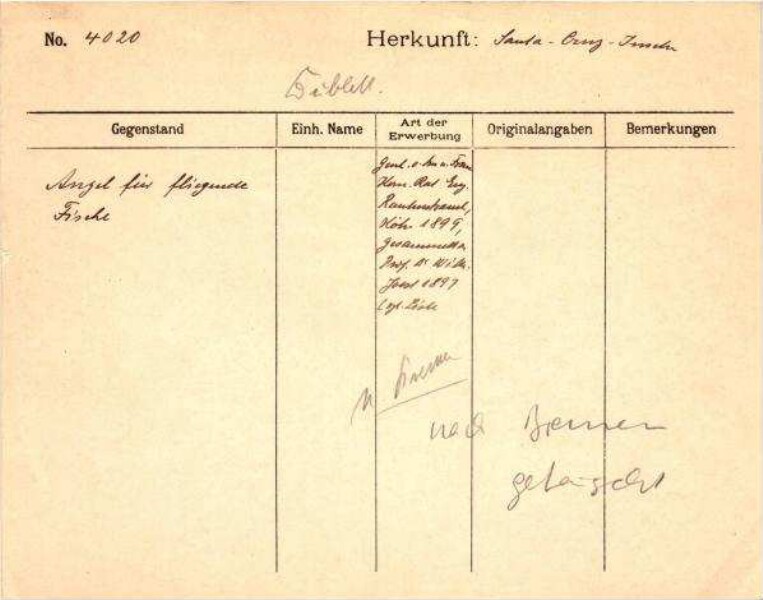 No. 4020 Herkunft: Santa-Cruz-Inseln
Dublett.
Gegenstand Einh. Name Art der Erwerbung Originalangaben Bemerkungen
Angel für fliegende
Fische
Gesch. v. Frau
Kom. Rat Eug.
Rautenstrauch,
Köln 1899,
gesammelt v.
Prof. Dr Wilh.
Joest 1897
n. Bremen
nach Bremen
getauscht